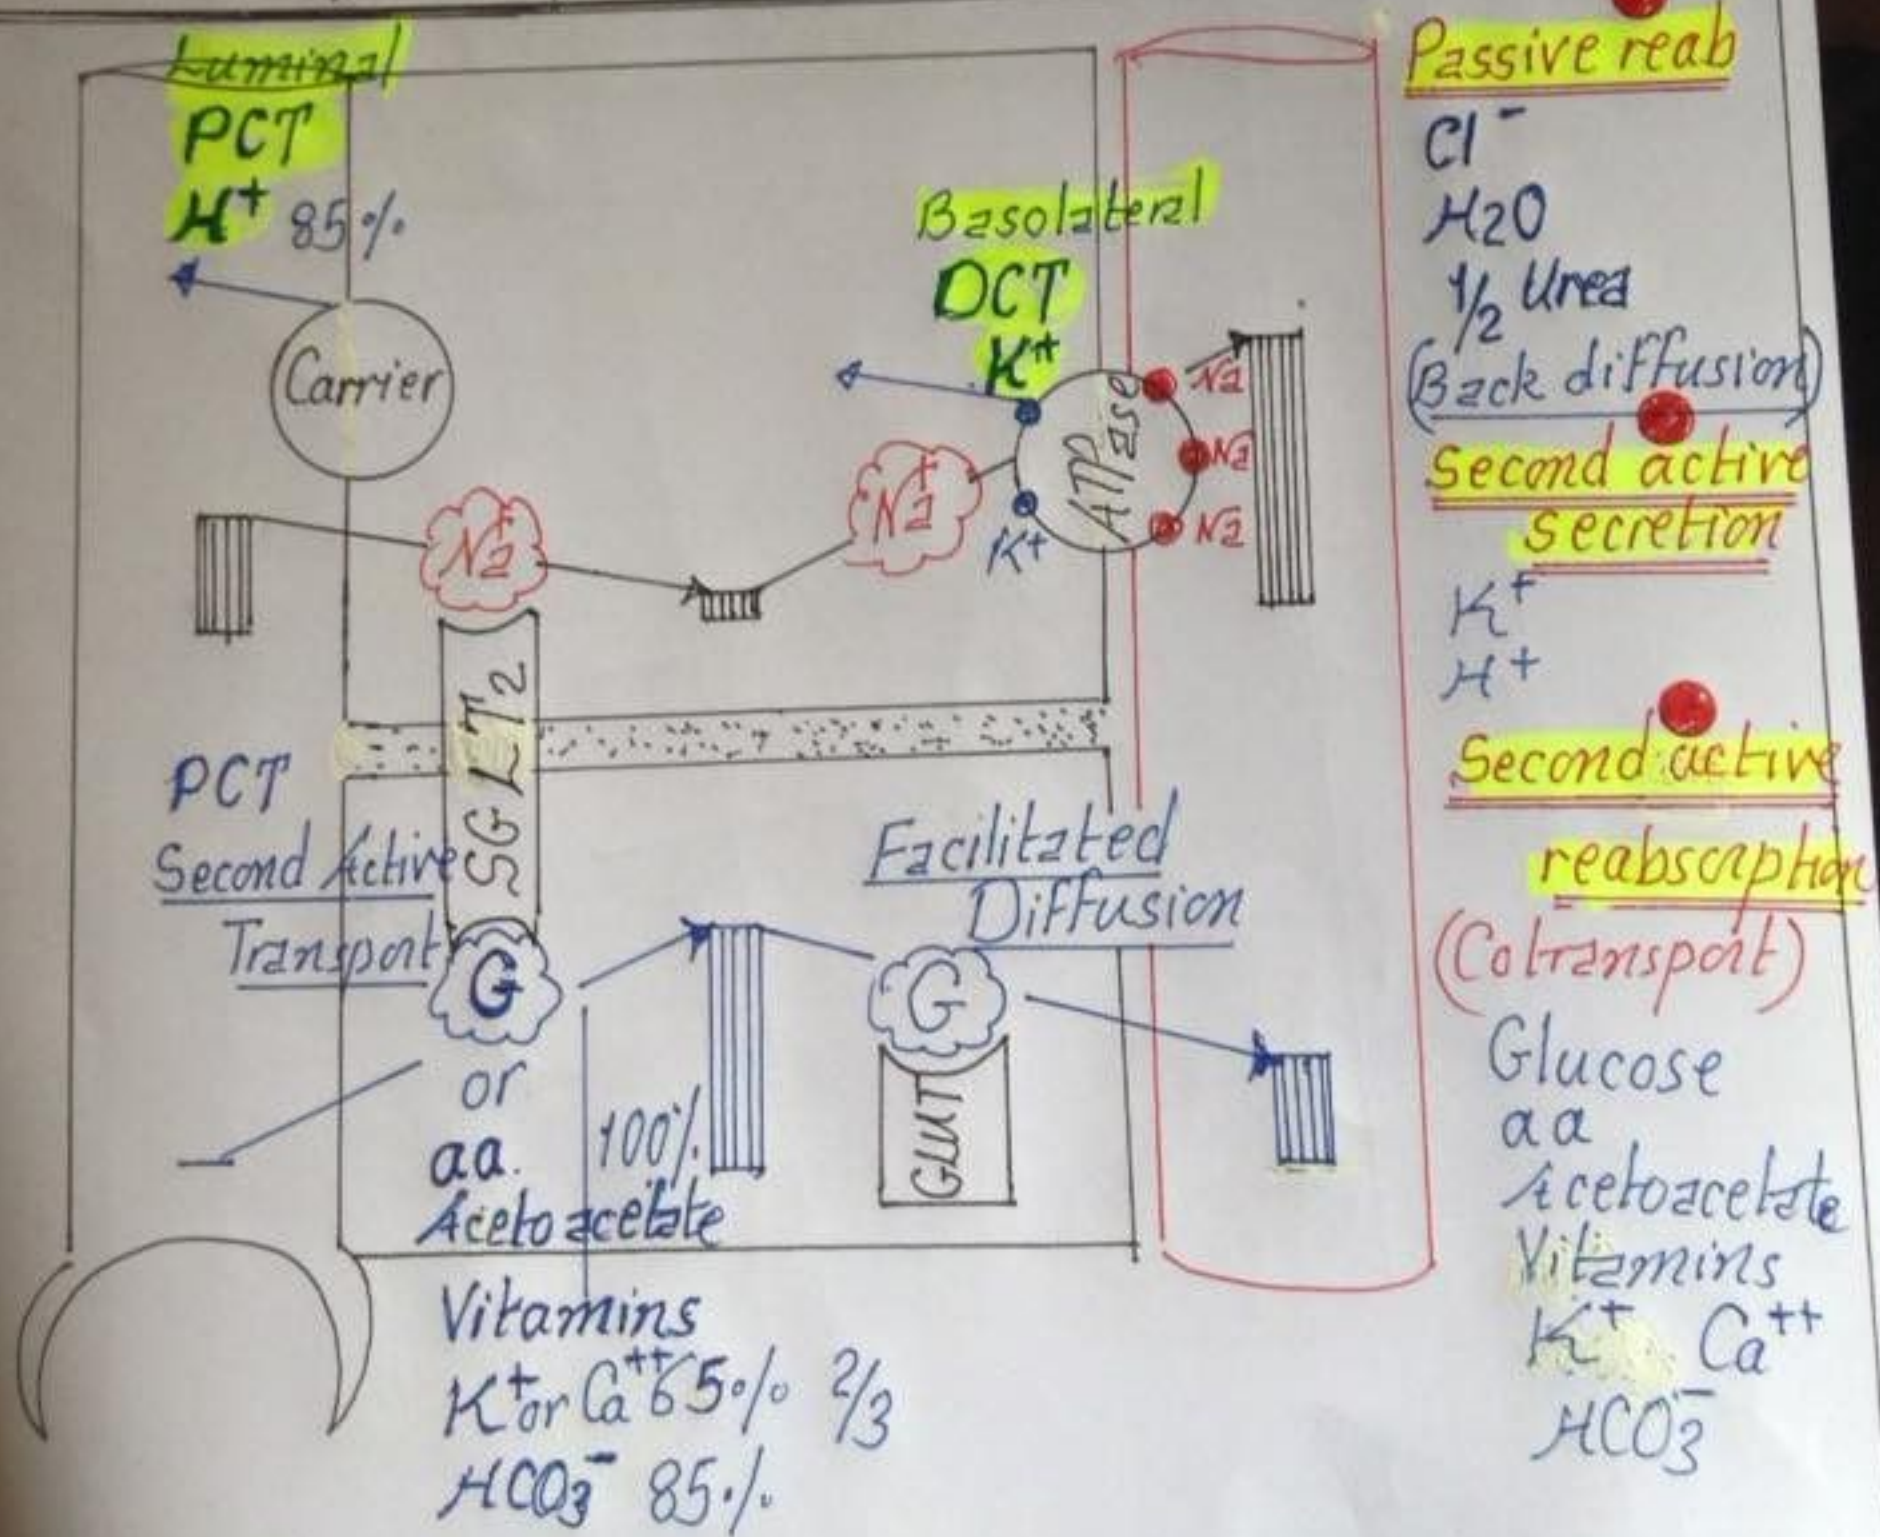 Luminal
PCT
H+ 85%
Carrier
Basolateral
DCT
K+
ATPase
Na
Na
Na
K+
Na+
Na+
SGLT2
PCT
Second Active
Transport
G
or
aa.
Acetoacetate
100%
Vitamins
K+ or Ca++ 65% 2/3
HCO3- 85%
Facilitated
Diffusion
G
GLUT
Passive reab
Cl-
H2O
1/2 Urea
(Back diffusion)
Second active
secretion
K+
H+
Second active
reabsorption
(Cotransport)
Glucose
aa
Acetoacetate
Vitamins
K+ Ca++
HCO3-